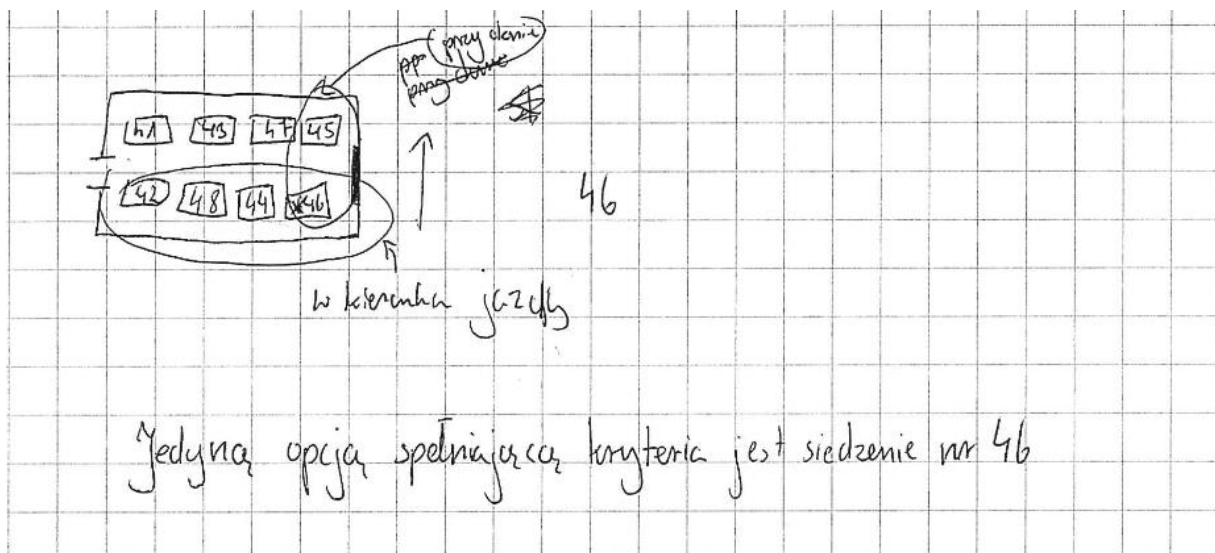 przy oknie
41 43 47 45
42 48 44 46
46
w kierunku jazdy
Jedyną opcją spełniającą kryteria jest siedzenie nr 46